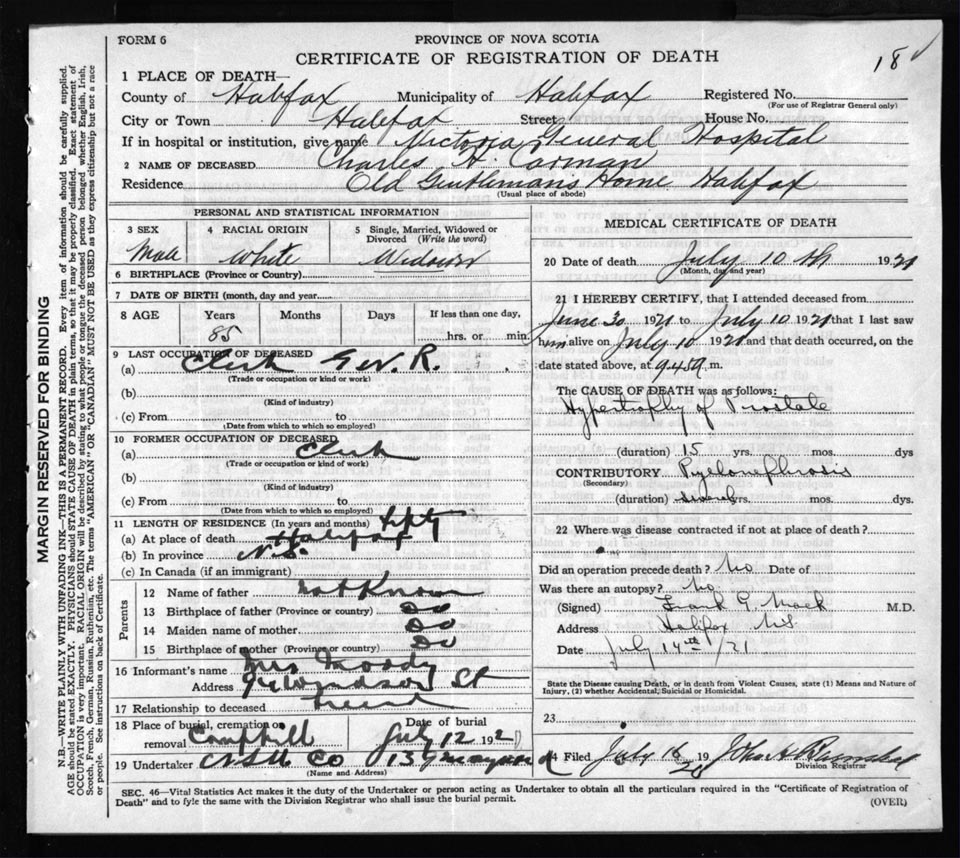 FORM 6
PROVINCE OF NOVA SCOTIA
CERTIFICATE OF REGISTRATION OF DEATH
18
1 PLACE OF DEATH—
County of Halifax Municipality of Halifax Registered No.
(For use of Registrar General only)
City or Town Halifax Street House No.
If in hospital or institution, give name Victoria General Hospital
2 NAME OF DECEASED Charles H. Carman
Residence Old Gentlemans Home Halifax
(Usual place of abode)
PERSONAL AND STATISTICAL INFORMATION
3 SEX 4 RACIAL ORIGIN 5 Single, Married, Widowed or Divorced (Write the word)
Male White Widower
6 BIRTHPLACE (Province or Country)
7 DATE OF BIRTH (month, day and year)
8 AGE Years Months Days If less than one day,
85 hrs. or min.
9 LAST OCCUPATION OF DECEASED
(a) Clerk Gov. R.
(Trade or occupation or kind or work)
(b)
(Kind of industry)
(c) From to
(Date from which to which so employed)
10 FORMER OCCUPATION OF DECEASED
(a) Clerk
(Trade or occupation or kind of work)
(b)
(Kind of industry)
(c) From to
(Date from which to which so employed)
11 LENGTH OF RESIDENCE (In years and months)
(a) At place of death Halifax
(b) In province N.S.
(c) In Canada (if an immigrant)
Parents
12 Name of father not Known
13 Birthplace of father (Province or country) Do
14 Maiden name of mother Do
15 Birthplace of mother (Province or country) Do
16 Informant's name Mrs Moody
Address Windsor St
17 Relationship to deceased Friend
18 Place of burial, cremation or removal Camphill
Date of burial July 12 1921
19 Undertaker Co
(Name and Address)
MEDICAL CERTIFICATE OF DEATH
20 Date of death July 10th 1921
(Month, day and year)
21 I HEREBY CERTIFY, that I attended deceased from
June 30 1921 to July 10 1921 that I last saw
him alive on July 10 1921 and that death occurred, on the
date stated above, at m.
The CAUSE OF DEATH was as follows:
Hypertrophy of Prostate
(duration) 15 yrs. mos. dys
CONTRIBUTORY Pyelonephrosis
(Secondary)
(duration) several yrs. mos. dys.
22 Where was disease contracted if not at place of death?
Did an operation precede death? No Date of
Was there an autopsy? No
(Signed) Frank G. Mack M.D.
Address Halifax NS
Date July 14th /21
State the Disease causing Death, or in death from Violent Causes, state (1) Means and Nature of
Injury, (2) whether Accidental, Suicidal or Homicidal.
23
24 Filed July 16 19 21
Division Registrar
SEC. 46—Vital Statistics Act makes it the duty of the Undertaker or person acting as Undertaker to obtain all the particulars required in the "Certificate of Registration of
Death" and to fyle the same with the Division Registrar who shall issue the burial permit.
(OVER)
MARGIN RESERVED FOR BINDING
N.B.—WRITE PLAINLY WITH UNFADING INK—THIS IS A PERMANENT RECORD. Every item of information should be carefully supplied.
AGE should be stated EXACTLY. PHYSICIANS should STATE CAUSE OF DEATH in plain terms, so that it may be properly classified. Exact statement of
OCCUPATION is very important. RACIAL ORIGIN will be described by stating to what people or tongue the deceased person belonged whether English, Irish,
Scotch, French, German, Russian, Ruthenian, etc. The terms "AMERICAN" OR "CANADIAN" MUST NOT BE USED as they express citizenship but not a race
or people. See instructions on back of Certificate.